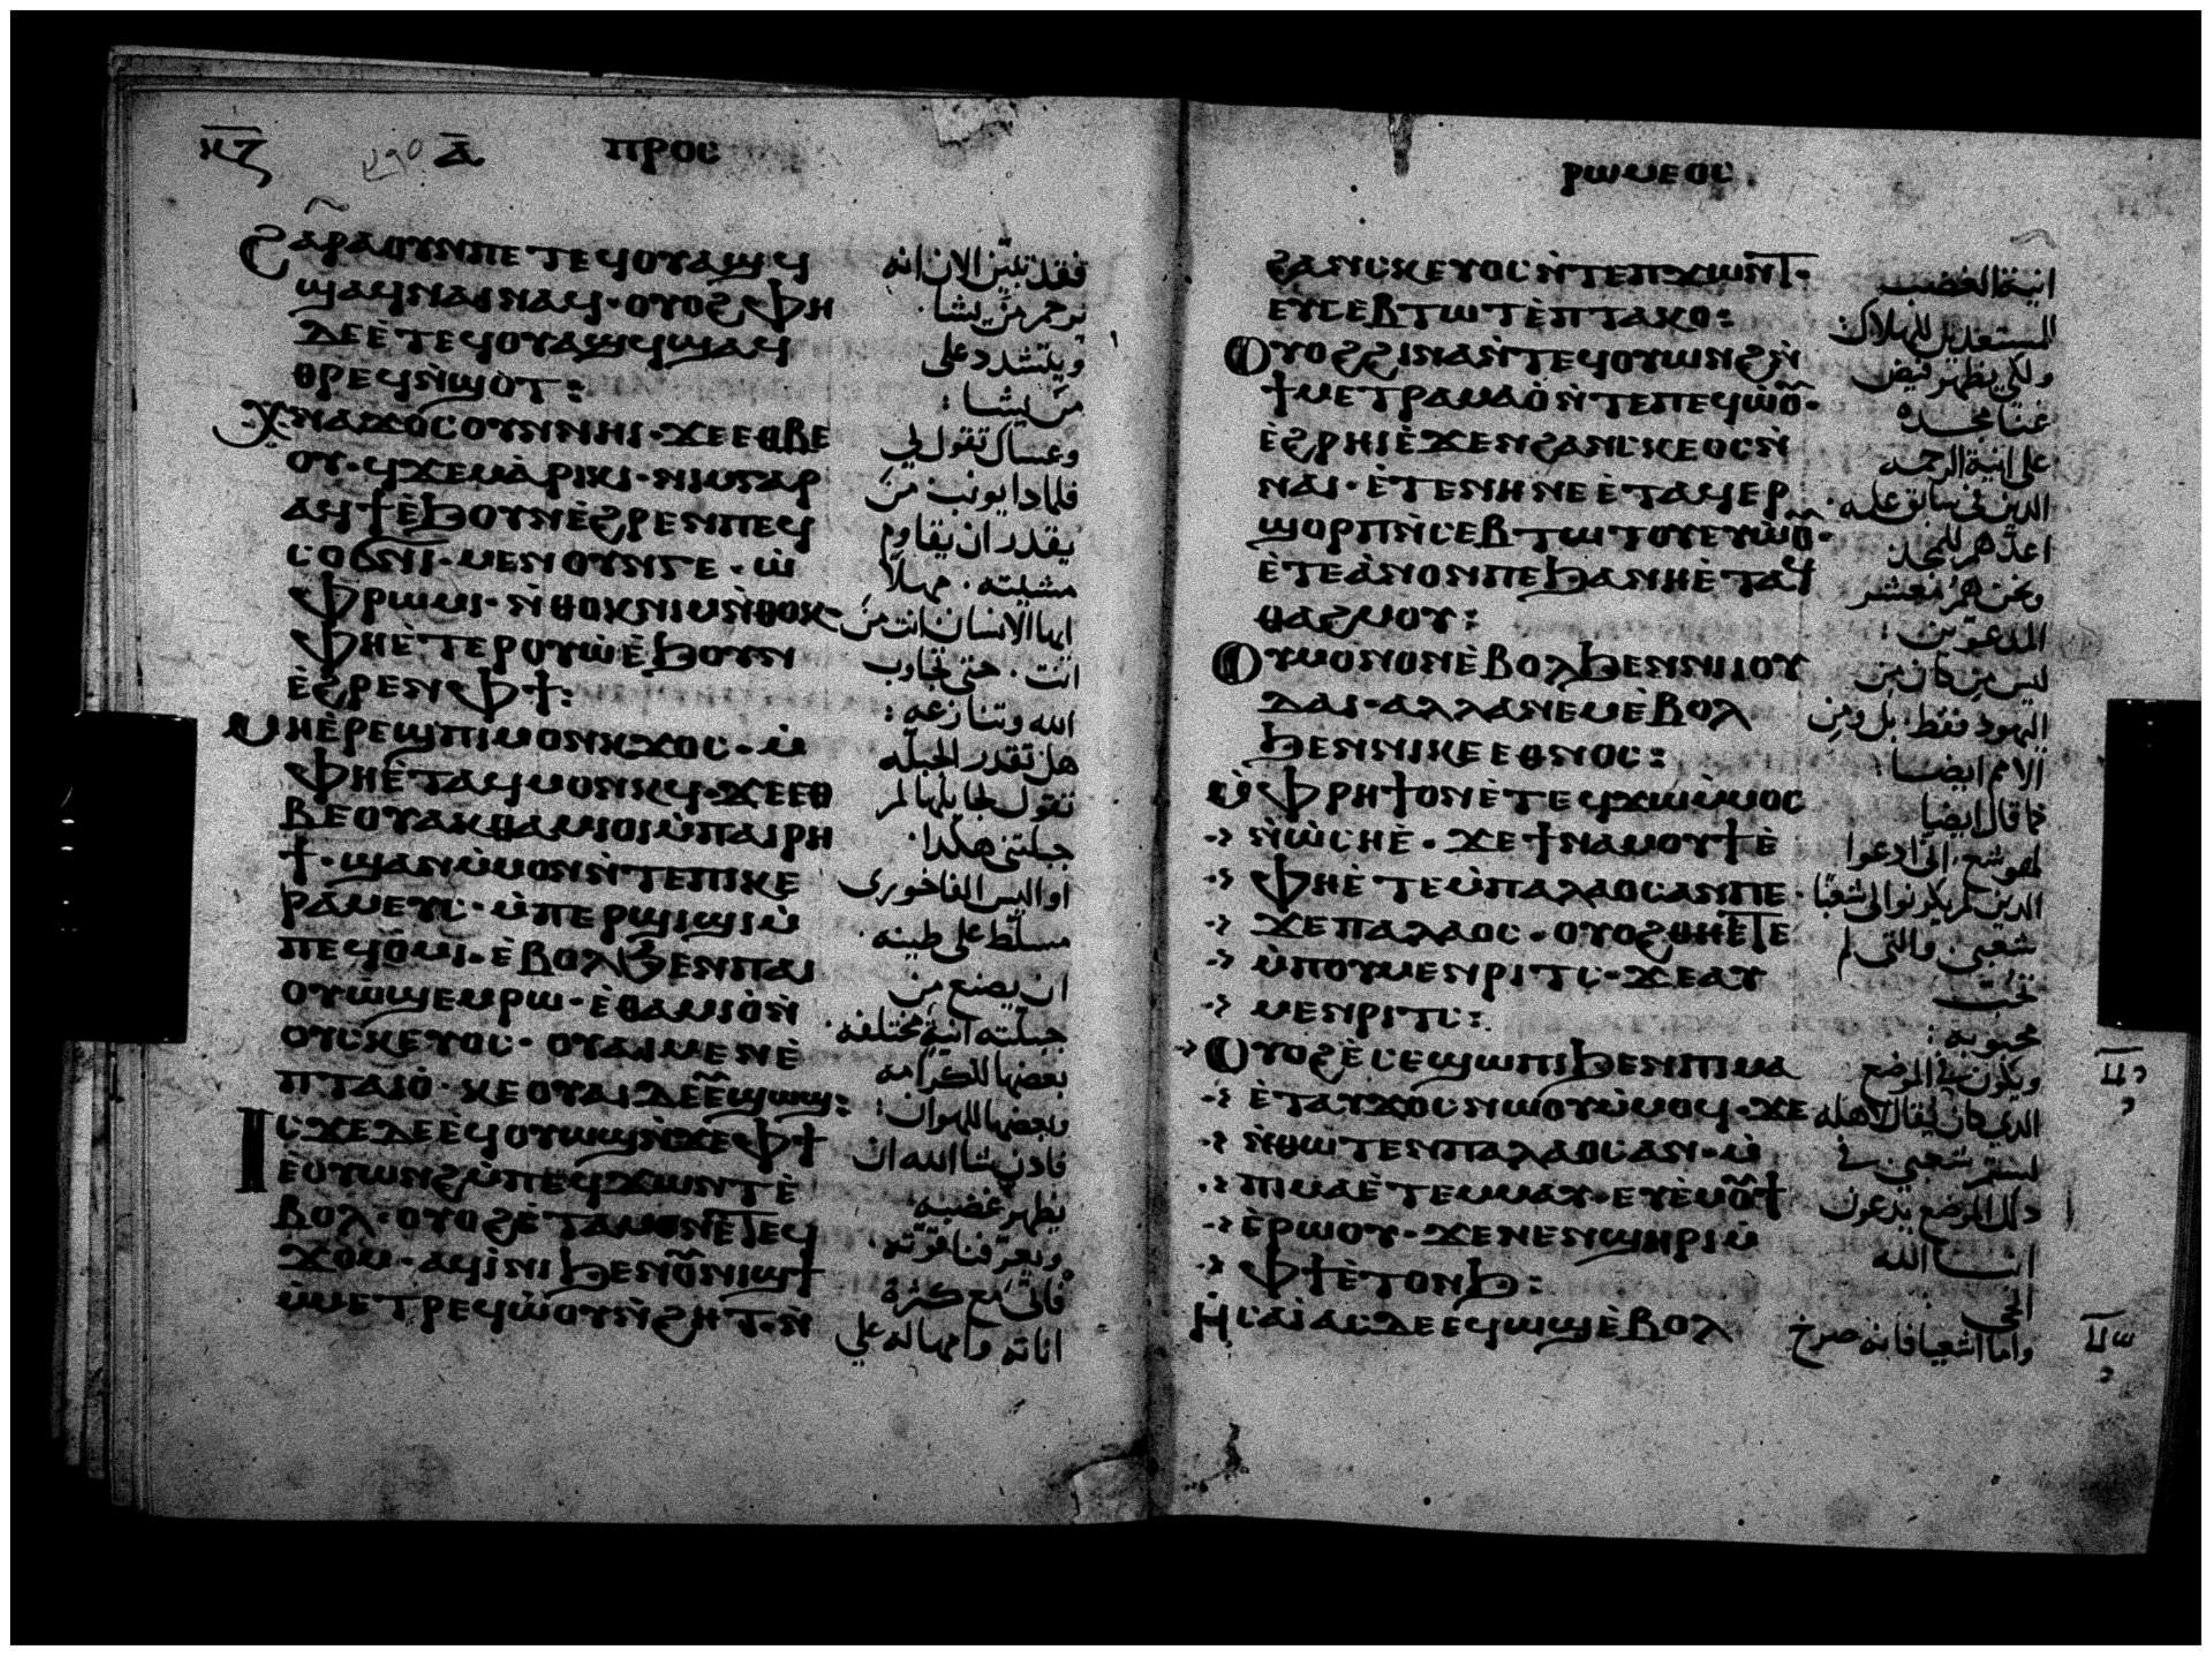 ⲕⲍ ⲁ̅ ⲡⲣⲟⲥ
ϩⲁⲣⲁⲟⲩⲛⲡⲉⲧⲉϥⲟⲩⲁϣϥ
ϣⲁϥⲛⲁⲓⲛⲁϥ · ⲟⲩⲟϩⲫⲏ
ⲇⲉⲉ̀ⲧⲉϥⲟⲩⲁϣϥϣⲁϥ
ⲑⲣⲉϥⲛ̀ϣⲟⲧ :
ⲭⲛⲁϫⲟⲥⲟⲩⲛⲛⲏⲓ · ϫⲉⲉⲑⲃⲉ
ⲟⲩ · ϥϫⲉⲙⲁ̀ⲣⲓⲕⲓ · ⲛⲓⲙⲅⲁⲣ
ⲁϥϯⲉ̀ϧⲟⲩⲛⲉ̀ϩⲣⲉⲛⲡⲉϥ
ⲥⲟϭⲛⲓ · ⲙⲉⲛⲟⲩⲛⲅⲉ · ⲱ̀
ⲫⲣⲱⲙⲓ · ⲛ̀ⲑⲟⲕⲛⲓⲙⲛ̀ⲑⲟⲕ
ⲫⲏⲉ̀ⲧⲉⲣⲟⲩⲱ̀ⲉ̀ϧⲟⲩⲛ
ⲉ̀ϩⲣⲉⲛⲫϯ :
ⲙⲏⲉ̀ⲣⲉϣⲡⲓⲙⲟⲛⲕϫⲟⲥ · ⲙ̀
ⲫⲏⲉ̀ⲧⲁϥⲙⲟⲛⲕϥ · ϫⲉⲉⲑ
ⲃⲉⲟⲩⲁⲕⲑⲁⲙⲓⲟⲓⲙ̀ⲡⲁⲓⲣⲏ
ϯ · ϣⲁⲛⲙ̀ⲙⲟⲛⲛ̀ⲧⲉⲡⲓⲕⲉ
ⲣⲁⲙⲉⲩⲥ · ⲙ̀ⲡⲉⲣϣⲓϣⲓⲙ̀
ⲡⲉϥⲟ̀ⲙⲓ · ⲉ̀ⲃⲟⲗϧⲉⲛⲡⲁⲓ
ⲟⲩⲱ̀ϣⲉⲙⲣⲱ · ⲉ̀ⲑⲁⲙⲓⲟ̀ⲛ̀
ⲟⲩⲥⲕⲉⲩⲟⲥ · ⲟⲩⲁⲓⲙⲉⲛⲉ̀
ⲡⲧⲁⲓⲟ̀ · ⲕⲉⲟⲩⲁⲓⲇⲉⲉ̀ⲡϣⲱϣ :
ⲓⲥϫⲉⲇⲉⲉ̀ϥⲟⲩⲱϣⲛ̀ϫⲉⲫϯ
ⲉ̀ⲟⲩⲱⲛϩⲙ̀ⲡⲉϥϫⲱⲛⲧⲉ̀
ⲃⲟⲗ · ⲟⲩⲟϩⲉ̀ⲧⲁⲙⲟⲛⲉ̀ⲧⲉϥ
ϫⲟⲙ · ⲁϥⲓ̀ⲛⲓϧⲉⲛⲟⲩⲛⲓϣϯ
ⲙ̀ⲙⲉⲧⲣⲉϥⲱ̀ⲟⲩⲛ̀ϩⲏⲧ · ⲛ̀
فقد تبين الان انه
يرحم من يشا ·
ويتشدد على
من يشا :
وعساك تقول لي
فلمادا يونب من
يقدر ان يقاوم
مشيته · مهلا
ايها الانسان انت من
انت · حتى تجاوب
الله وتنازعه :
هل تقدر الجبله
تقول لجابلها لم
جبلتني هكدا ·
او اليس الفاخوري
مسلط على طينه ·
ان يصنع من
جبلته انية مختلفه ·
بعضها للكرامه
وبعضها للهوان :
فادن يشا الله ان
يظهر غضبه
ويعرفنا قوته ·
فاتى مع كثرة
اناته وامهاله على
ⲣⲱⲙⲉⲟⲥ ·
ϩⲁⲛⲥⲕⲉⲩⲟⲥⲛ̀ⲧⲉⲡϫⲱⲛⲧ ·
ⲉⲩⲥⲉⲃⲧⲱⲧⲉ̀ⲡⲧⲁⲕⲟ :
ⲟⲩⲟϩϩⲓⲛⲁⲛ̀ⲧⲉϥⲟⲩⲱⲛϩⲛ̀
ϯⲙⲉⲧⲣⲁⲙⲁⲟ̀ⲛ̀ⲧⲉⲡⲉϥⲱ̀ⲟⲩ ·
ⲉ̀ϩⲣⲏⲓⲉ̀ϫⲉⲛϩⲁⲛⲥⲕⲉⲟⲥⲛ̀
ⲛⲁⲓ · ⲉ̀ⲧⲉⲛⲏⲛⲉⲉ̀ⲧⲁϥⲉⲣ
ϣⲟⲣⲡⲛ̀ⲥⲉⲃⲧⲱⲧⲟⲩⲉⲩⲱ̀ⲟⲩ ·
ⲉ̀ⲧⲉⲁ̀ⲛⲟⲛⲡⲉϧⲁⲛⲏⲉ̀ⲧⲁϥ
ⲑⲁϩⲙⲟⲩ :
ⲟⲩⲙⲟⲛⲟⲛⲉ̀ⲃⲟⲗϧⲉⲛⲛⲓⲓⲟⲩ
ⲇⲁⲓ · ⲁⲗⲗⲁⲛⲉⲙⲉ̀ⲃⲟⲗ
ϧⲉⲛⲛⲓⲕⲉⲉⲑⲛⲟⲥ :
ⲙ̀ⲫⲣⲏϯⲟⲛⲉ̀ⲧⲉϥϫⲱⲙ̀ⲙⲟⲥ
ⲛ̀ⲱ̀ⲥⲏⲉ̀ · ϫⲉϯⲛⲁⲙⲟⲩϯⲉ̀
ⲫⲏⲉ̀ⲧⲉⲙ̀ⲡⲁⲗⲁⲟⲥⲁⲛⲡⲉ ·
ϫⲉⲡⲁⲗⲁⲟⲥ · ⲟⲩⲟϩⲑⲏⲉ̀ⲧⲉ
ⲙ̀ⲡⲟⲩⲙⲉⲛⲣⲓⲧⲥ · ϫⲉⲁⲩ
ⲙⲉⲛⲣⲓⲧⲥ :
ⲟⲩⲟϩⲉ̀ⲥⲉϣⲱⲡⲓϧⲉⲛⲡⲓⲙⲁ
ⲉ̀ⲧⲁⲩϫⲟⲥⲛⲱⲟⲩⲙ̀ⲙⲟϥ · ϫⲉ
ⲛ̀ⲑⲱⲧⲉⲛⲡⲁⲗⲁⲟⲥⲁⲛ · ⲙ̀
ⲡⲓⲙⲁⲉ̀ⲧⲉⲙⲙⲁⲩ · ⲉⲩⲉ̀ⲙⲟⲩϯ
ⲉ̀ⲣⲱⲟⲩ · ϫⲉⲛⲉⲛϣⲏⲣⲓⲙ̀
ⲫϯⲉ̀ⲧⲟⲛϧ :
ⲏⲥⲁⲓ̀ⲁⲥⲇⲉⲉϥⲱϣⲉ̀ⲃⲟⲗ
انية الغضب
المستعدين للهلاك
ولكي يظهر فيض
غنا مجده
على انية الرحمه
الدين في سابق علمه ·
اعدهم للمجد
ونحن هم معشر
المدعوين :
ليس من كان من
اليهود فقط · بل ومن
الامم ايضا :
كما قال ايضا
لهوشع · اني ادعوا
الدين لم يكونوا لي شعبا
شعبي · والتي لم
تحب
محبوبه :
ويكون في الموضع
الدي كان يقال لاهله
لستم شعبي · في
دلك الموضع يدعون
ابنا الله
الحي
واما اشعيا فانه صرخ